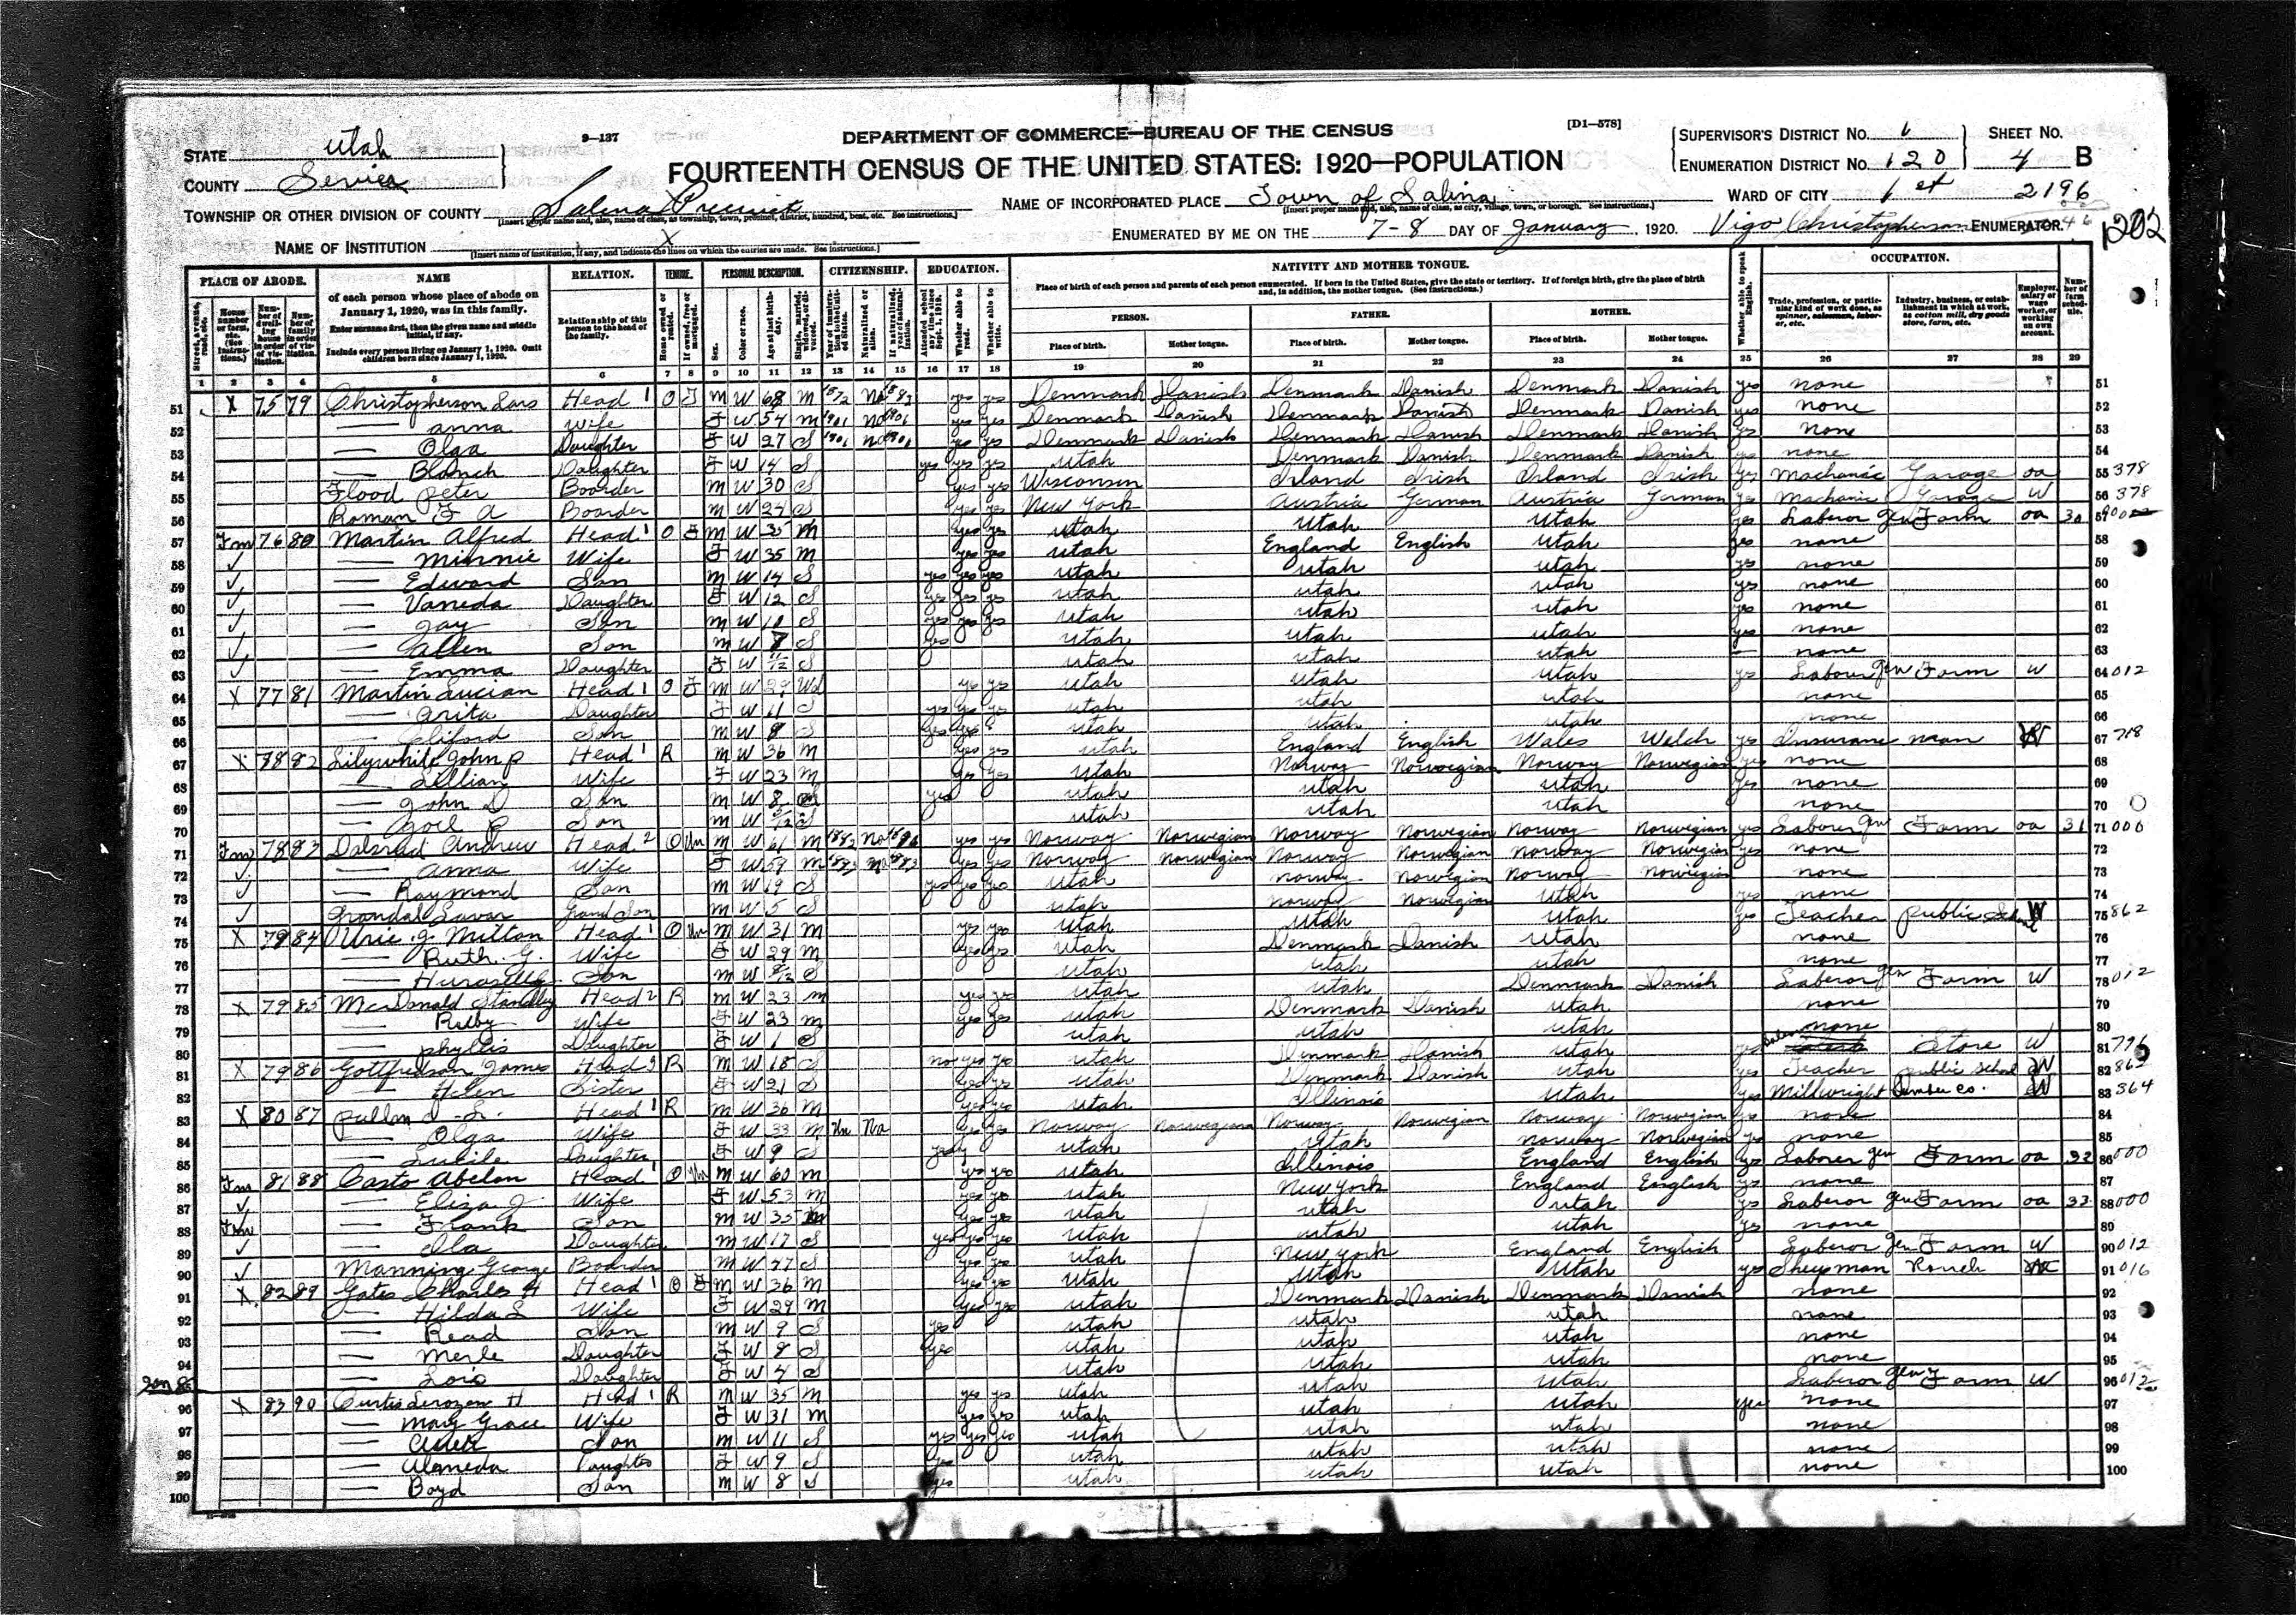 9—137
DEPARTMENT OF COMMERCE—BUREAU OF THE CENSUS
[D1—578]
FOURTEENTH CENSUS OF THE UNITED STATES: 1920—POPULATION
STATE Utah
COUNTY Sevier
TOWNSHIP OR OTHER DIVISION OF COUNTY Salina Precinct
NAME OF INCORPORATED PLACE Town of Salina
SUPERVISOR'S DISTRICT No. 1
ENUMERATION DISTRICT No. 120
SHEET No. 4 B
WARD OF CITY 1st
2196
NAME OF INSTITUTION X
ENUMERATED BY ME ON THE 7-8 DAY OF January, 1920. Vigo Christopherson ENUMERATOR.
1202
PLACE OF ABODE. NAME RELATION. TENURE. PERSONAL DESCRIPTION. CITIZENSHIP. EDUCATION. NATIVITY AND MOTHER TONGUE. OCCUPATION.
of each person whose place of abode on January 1, 1920, was in this family.
Enter surname first, then the given name and middle initial, if any.
Include every person living on January 1, 1920. Omit children born since January 1, 1920.
Relationship of this person to the head of the family.
Place of birth of each person and parents of each person enumerated. If born in the United States, give the state or territory. If of foreign birth, give the place of birth and, in addition, the mother tongue. (See instructions.)
PERSON. FATHER. MOTHER.
Place of birth. Mother tongue. Place of birth. Mother tongue. Place of birth. Mother tongue.
1 2 3 4 5 6 7 8 9 10 11 12 13 14 15 16 17 18 19 20 21 22 23 24 25 26 27 28 29
51 X 75 79 Christopherson Lars Head 1 O F M W 68 M 1872 Na 1883 yes yes Denmark Danish Denmark Danish Denmark Danish yes none
52 — Anna Wife F W 54 M 1901 Na 1901 yes yes Denmark Danish Denmark Danish Denmark Danish yes none
53 — Olga Daughter F W 27 S 1901 Na 1901 yes yes Denmark Danish Denmark Danish Denmark Danish yes none
54 — Blanch Daughter F W 14 S yes yes yes Utah Denmark Danish Denmark Danish yes none
55 Flood Peter Boarder M W 30 S yes yes Wisconsin Irland Irish Irland Irish yes Machanic Garage oa 378
56 Roman F A Boarder M W 24 S yes yes New York Austria German Austria German yes Machanic Garage W 378
57 Fm 76 80 Martin Alfred Head 1 O F M W 35 M yes yes Utah Utah Utah yes Laberor gen Farm oa 30
58 — Minnie Wife F W 35 M yes yes Utah England English Utah yes none
59 — Edward Son M W 14 S yes yes yes Utah Utah Utah yes none
60 — Vaneda Daughter F W 12 S yes yes yes Utah Utah Utah yes none
61 — Jay Son M W 10 S yes yes yes Utah Utah Utah yes none
62 — Allen Son M W 7 S yes Utah Utah Utah yes none
63 — Emma Daughter F W 11/12 S Utah Utah Utah — none
64 X 77 81 Martin Lucian Head 1 O F M W 29 Wd yes yes Utah Utah Utah yes Labour gen Farm W 012
65 — Arita Daughter F W 11 S yes yes yes Utah Utah Utah none
66 — Cliford Son M W 8 S yes yes Utah Utah Utah none
67 X 78 82 Lilywhite John P Head 1 R M W 36 M yes yes Utah England English Wales Welch yes Insurane man W 718
68 — Lillian Wife F W 23 M yes yes Utah Norway Norwegian Norway Norwegian yes none
69 — John D Son M W 8 S yes Utah Utah Utah yes none
70 — Son M W S Utah Utah Utah none
71 Fm 78 83 Andrew Head 2 O Un M W 61 M 1882 Na 1896 yes yes Norway Norwegian Norway Norwegian Norway Norwegian yes Labourer gen Farm oa 31 000
72 — Anna Wife F W 59 M 1883 Na yes yes Norway Norwegian Norway Norwegian Norway Norwegian yes none
73 — Raymond Son M W 19 S yes yes yes Utah Norway Norwegian Norway Norwegian none
74 Grand Son M W 5 S Utah Norway Norwegian Utah yes none
75 X 79 84 Urie J Milton Head 1 O Un M W 31 M yes yes Utah Utah Utah yes Teacher public School W 862
76 — Ruth G. Wife F W 29 M yes yes Utah Denmark Danish Utah none
77 — Son M W S Utah Utah Utah none
78 X 79 85 McDonald Standley Head 2 R M W 23 M yes yes Utah Utah Denmark Danish Laberor gen Farm W 012
79 — Ruby Wife F W 23 M yes yes Utah Denmark Danish Utah none
80 — Phyllis Daughter F W 1 S Utah Utah Utah none
81 X 79 86 Gottfredson James Head 3 R M W 18 S no yes yes Utah Denmark Danish Utah yes Store W
82 — Helen Sister F W 21 S yes yes Utah Denmark Danish Utah yes Teacher public School W 862
83 X 80 87 Pullen Head 1 R M W 36 M yes yes Utah Illinois Utah yes Millwright Lumber Co. W 364
84 — Olga Wife F W 33 M Un Na yes yes Norway Norwegian Norway Norwegian Norway Norwegian yes none
85 — Lucile Daughter F W 9 S yes Utah Utah Norway Norwegian yes none
86 Fm 81 88 Casto Abelon Head 1 O Un M W 60 M yes yes Utah Illinois England English yes Laberer gen Farm oa 32 000
87 — Eliza J Wife F W 53 M yes yes Utah New York England English yes none
88 Fm — Frank Son M W 35 yes yes Utah Utah Utah yes Laberor gen Farm oa 33 000
89 — Ola Daughter M W 17 S yes yes yes Utah Utah Utah yes none
90 Manning George Boarder M W 27 S yes yes Utah New York England English Laberor gen Farm W 012
91 X 82 89 Gates Charles H Head 1 O F M W 36 M yes yes Utah Utah Utah yes Sheepman Ranch 016
92 — Hilda L Wife F W 29 M yes yes Utah Denmark Danish Denmark Danish none
93 — Read Son M W 9 S yes Utah Utah Utah none
94 — Merle Daughter F W 8 S yes Utah Utah Utah none
95 — Lois Daughter F W 4 S Utah Utah Utah none
96 X 83 90 Curtis H Head 1 R M W 35 M yes yes Utah Utah Utah Laberor gen Farm W 012
97 — Mary Grace Wife F W 31 M yes yes Utah Utah Utah yes none
98 — Son M W 11 S yes yes yes Utah Utah Utah none
99 — Alameda Daughter F W 9 S yes Utah Utah Utah none
100 — Boyd Son M W 8 S yes Utah Utah Utah none